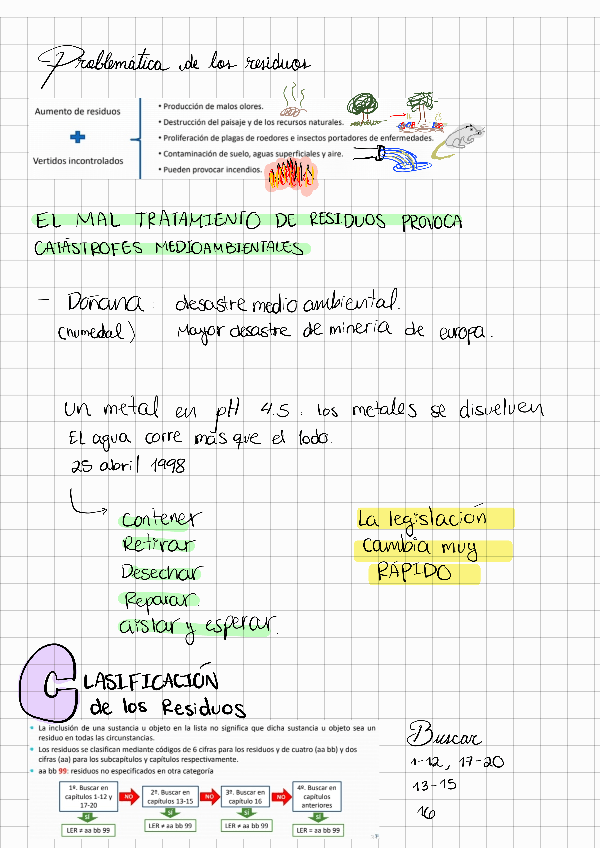 Problemática de los residuos
Aumento de residuos
Vertidos incontrolados
• Producción de malos olores.
• Destrucción del paisaje y de los recursos naturales.
• Proliferación de plagas de roedores e insectos portadores de enfermedades.
• Contaminación de suelo, aguas superficiales y aire.
• Pueden provocar incendios.
EL MAL TRATAMIENTO DE RESIDUOS PROVOCA
CATÁSTROFES MEDIOAMBIENTALES
- Doñana. desastre medio ambiental.
(humedal) Mayor desastre de minería de europa.
Un metal en pH 4.5. los metales se disuelven
EL agua corre más que el lodo.
25 abril 1998
Contener
Retirar
Desechar
Reparar.
aislar y esperar.
La legislación
cambia muy
RÁPIDO
CLASIFICACIÓN
de los Residuos
• La inclusión de una sustancia u objeto en la lista no significa que dicha sustancia u objeto sea un
residuo en todas las circunstancias.
• Los residuos se clasifican mediante códigos de 6 cifras para los residuos y de cuatro (aa bb) y dos
cifras (aa) para los subcapítulos y capítulos respectivamente.
• aa bb 99: residuos no especificados en otra categoría
1º. Buscar en
capítulos 1-12 y
17-20
NO
2º. Buscar en
capítulos 13-15
NO
3º. Buscar en
capítulo 16
NO
4º. Buscar en
capítulos
anteriores
SÍ
SÍ
SÍ
SÍ
LER ≠ aa bb 99
LER ≠ aa bb 99
LER ≠ aa bb 99
LER = aa bb 99
Buscar
1-12, 17-20
13-15
16